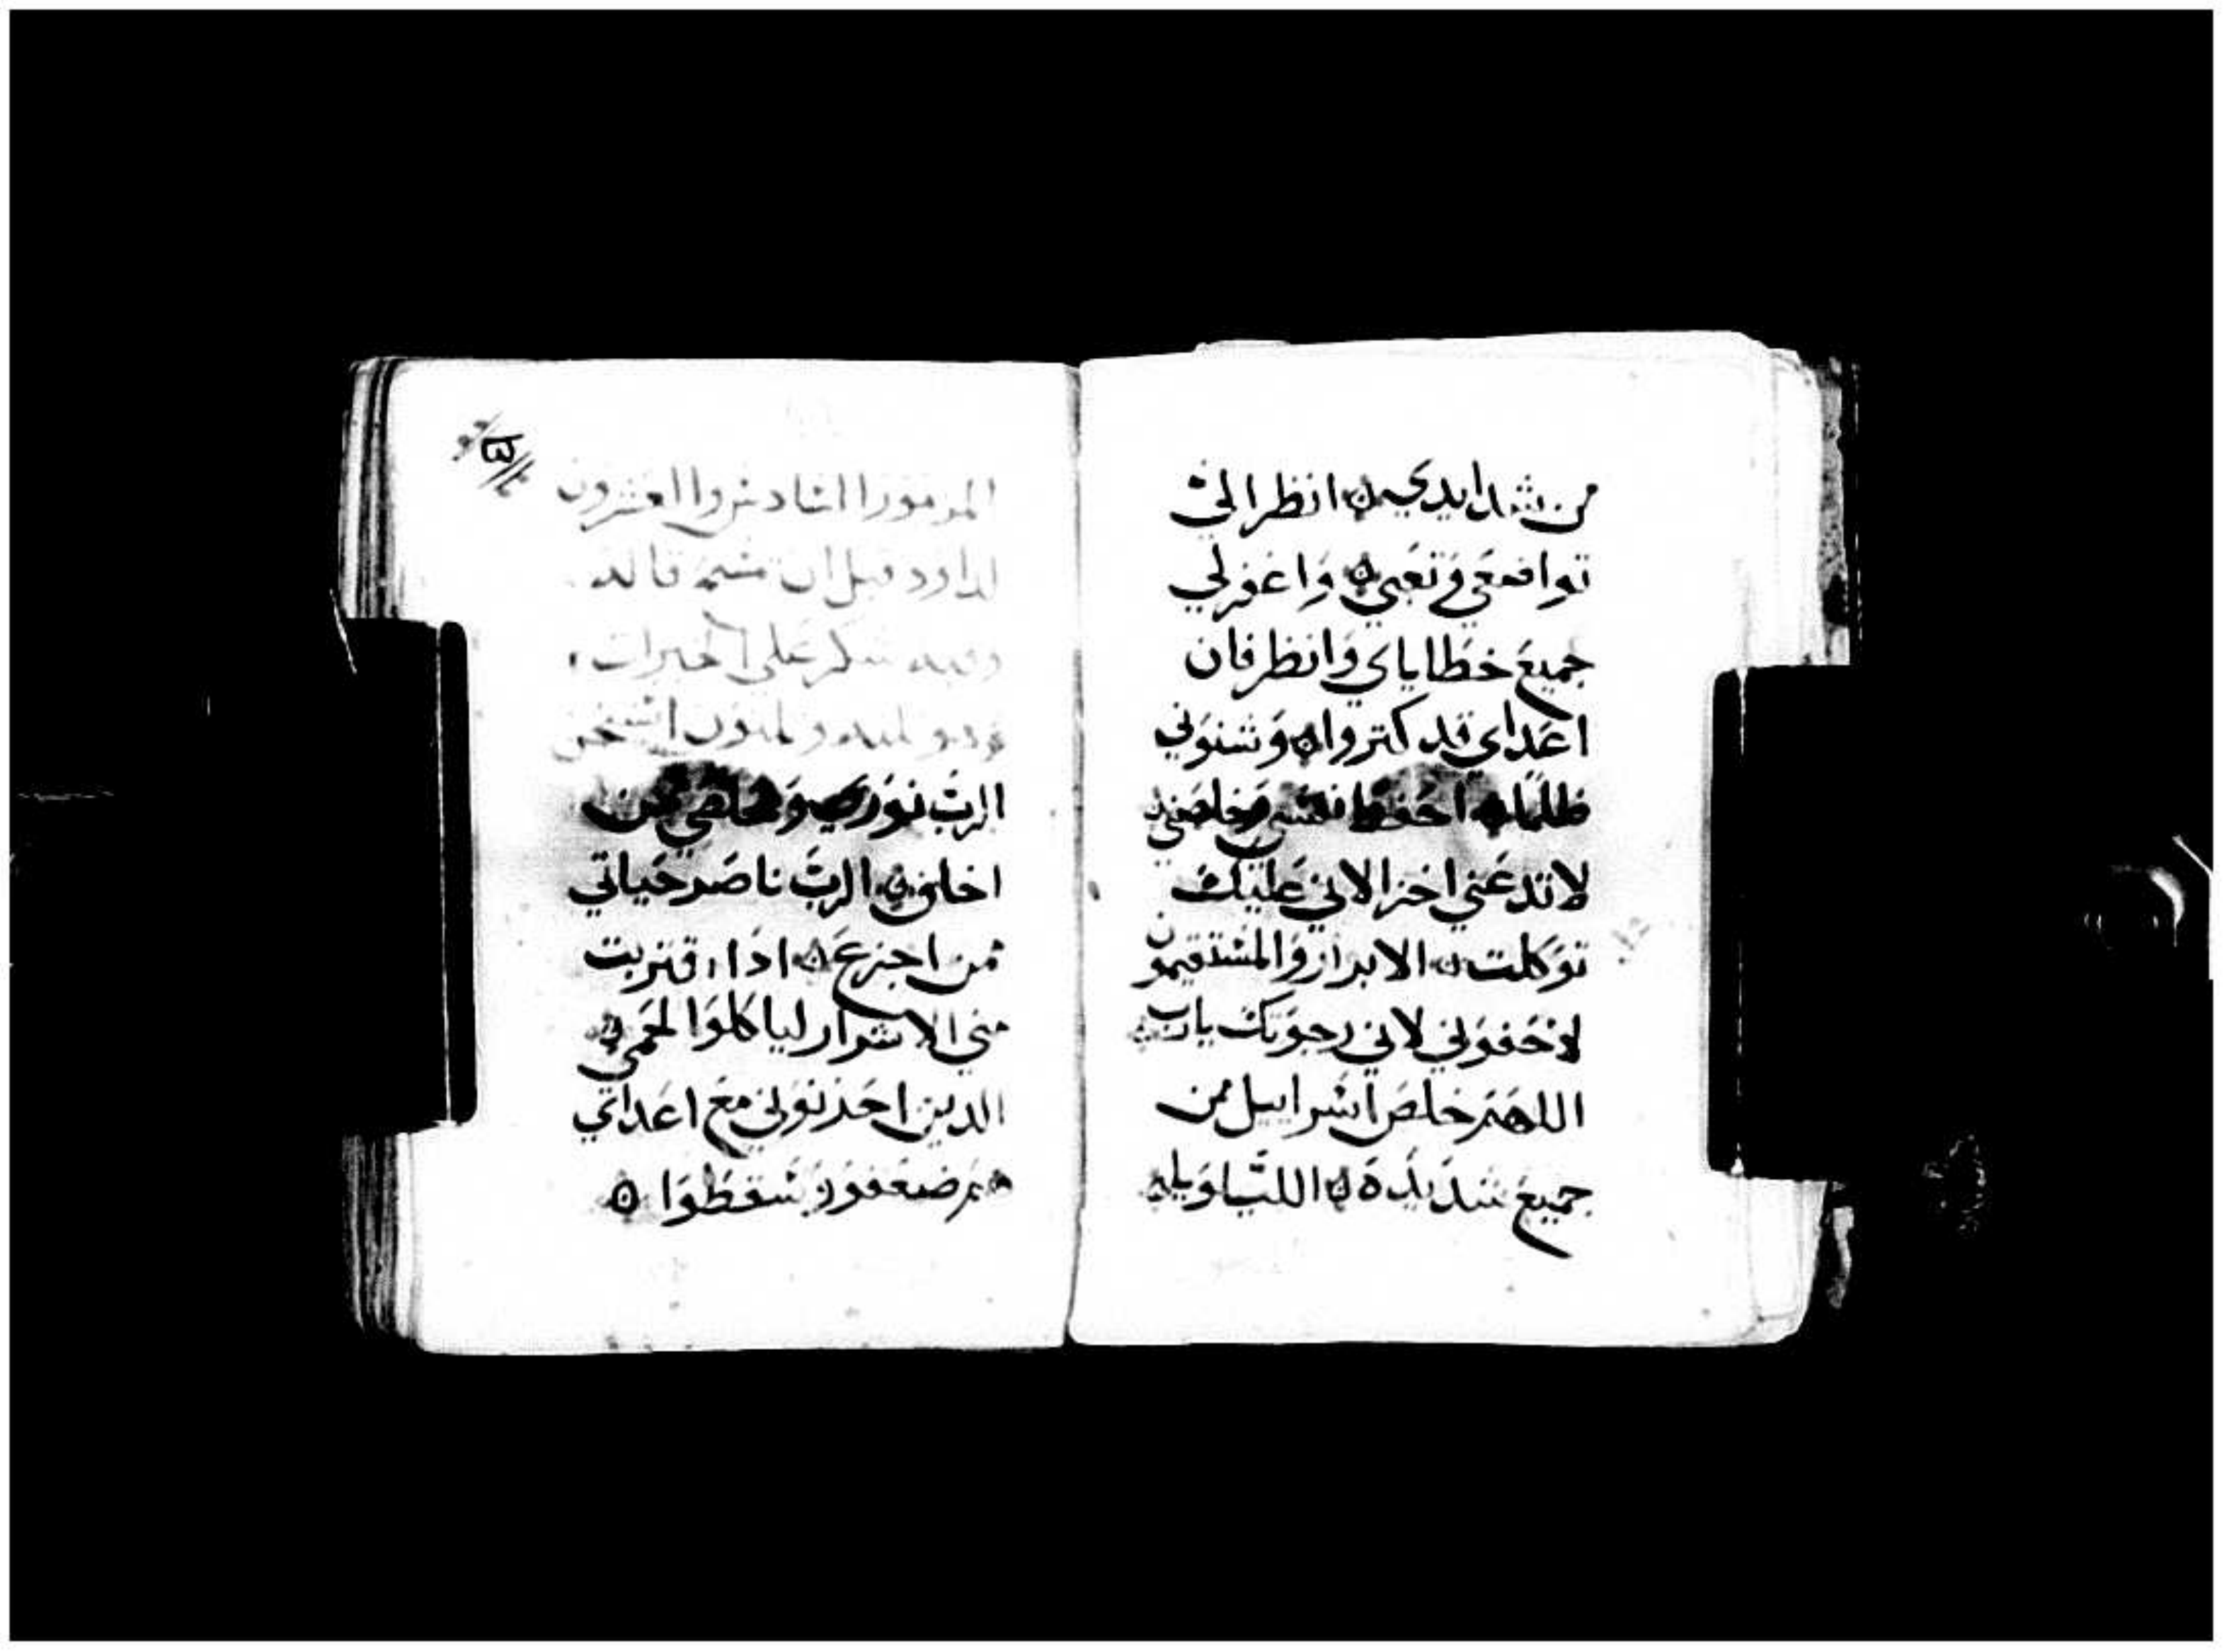 من شدايدي ۞ انظر الي
تواضعي وتعبي ۞ واغفر لي
جميع خطاياي وانظر فان
اعداي قد كتروا ۞ وشنوني
ظلما ۞ احفظ نفسي وخلصني
لا تدعني اخزا لاني عليك
توكلت ۞ الابرار والمستقيمون
لاني رجوتك يارب
اللهم خلص اسراييل من
جميع شدايده ۞ الليلويا
المزمور السادس والعشرون
لداود قبل ان
شكر على الخيرات

الرب نوري ومخلصي ممن
اخاف ۞ الرب ناصر حياتي
ممن اجزع ۞ اذا اقتربت
مني الاشرار لياكلوا لحمي
الدين احزنوني مع اعداي
هم ضعفوا وسقطوا ۞